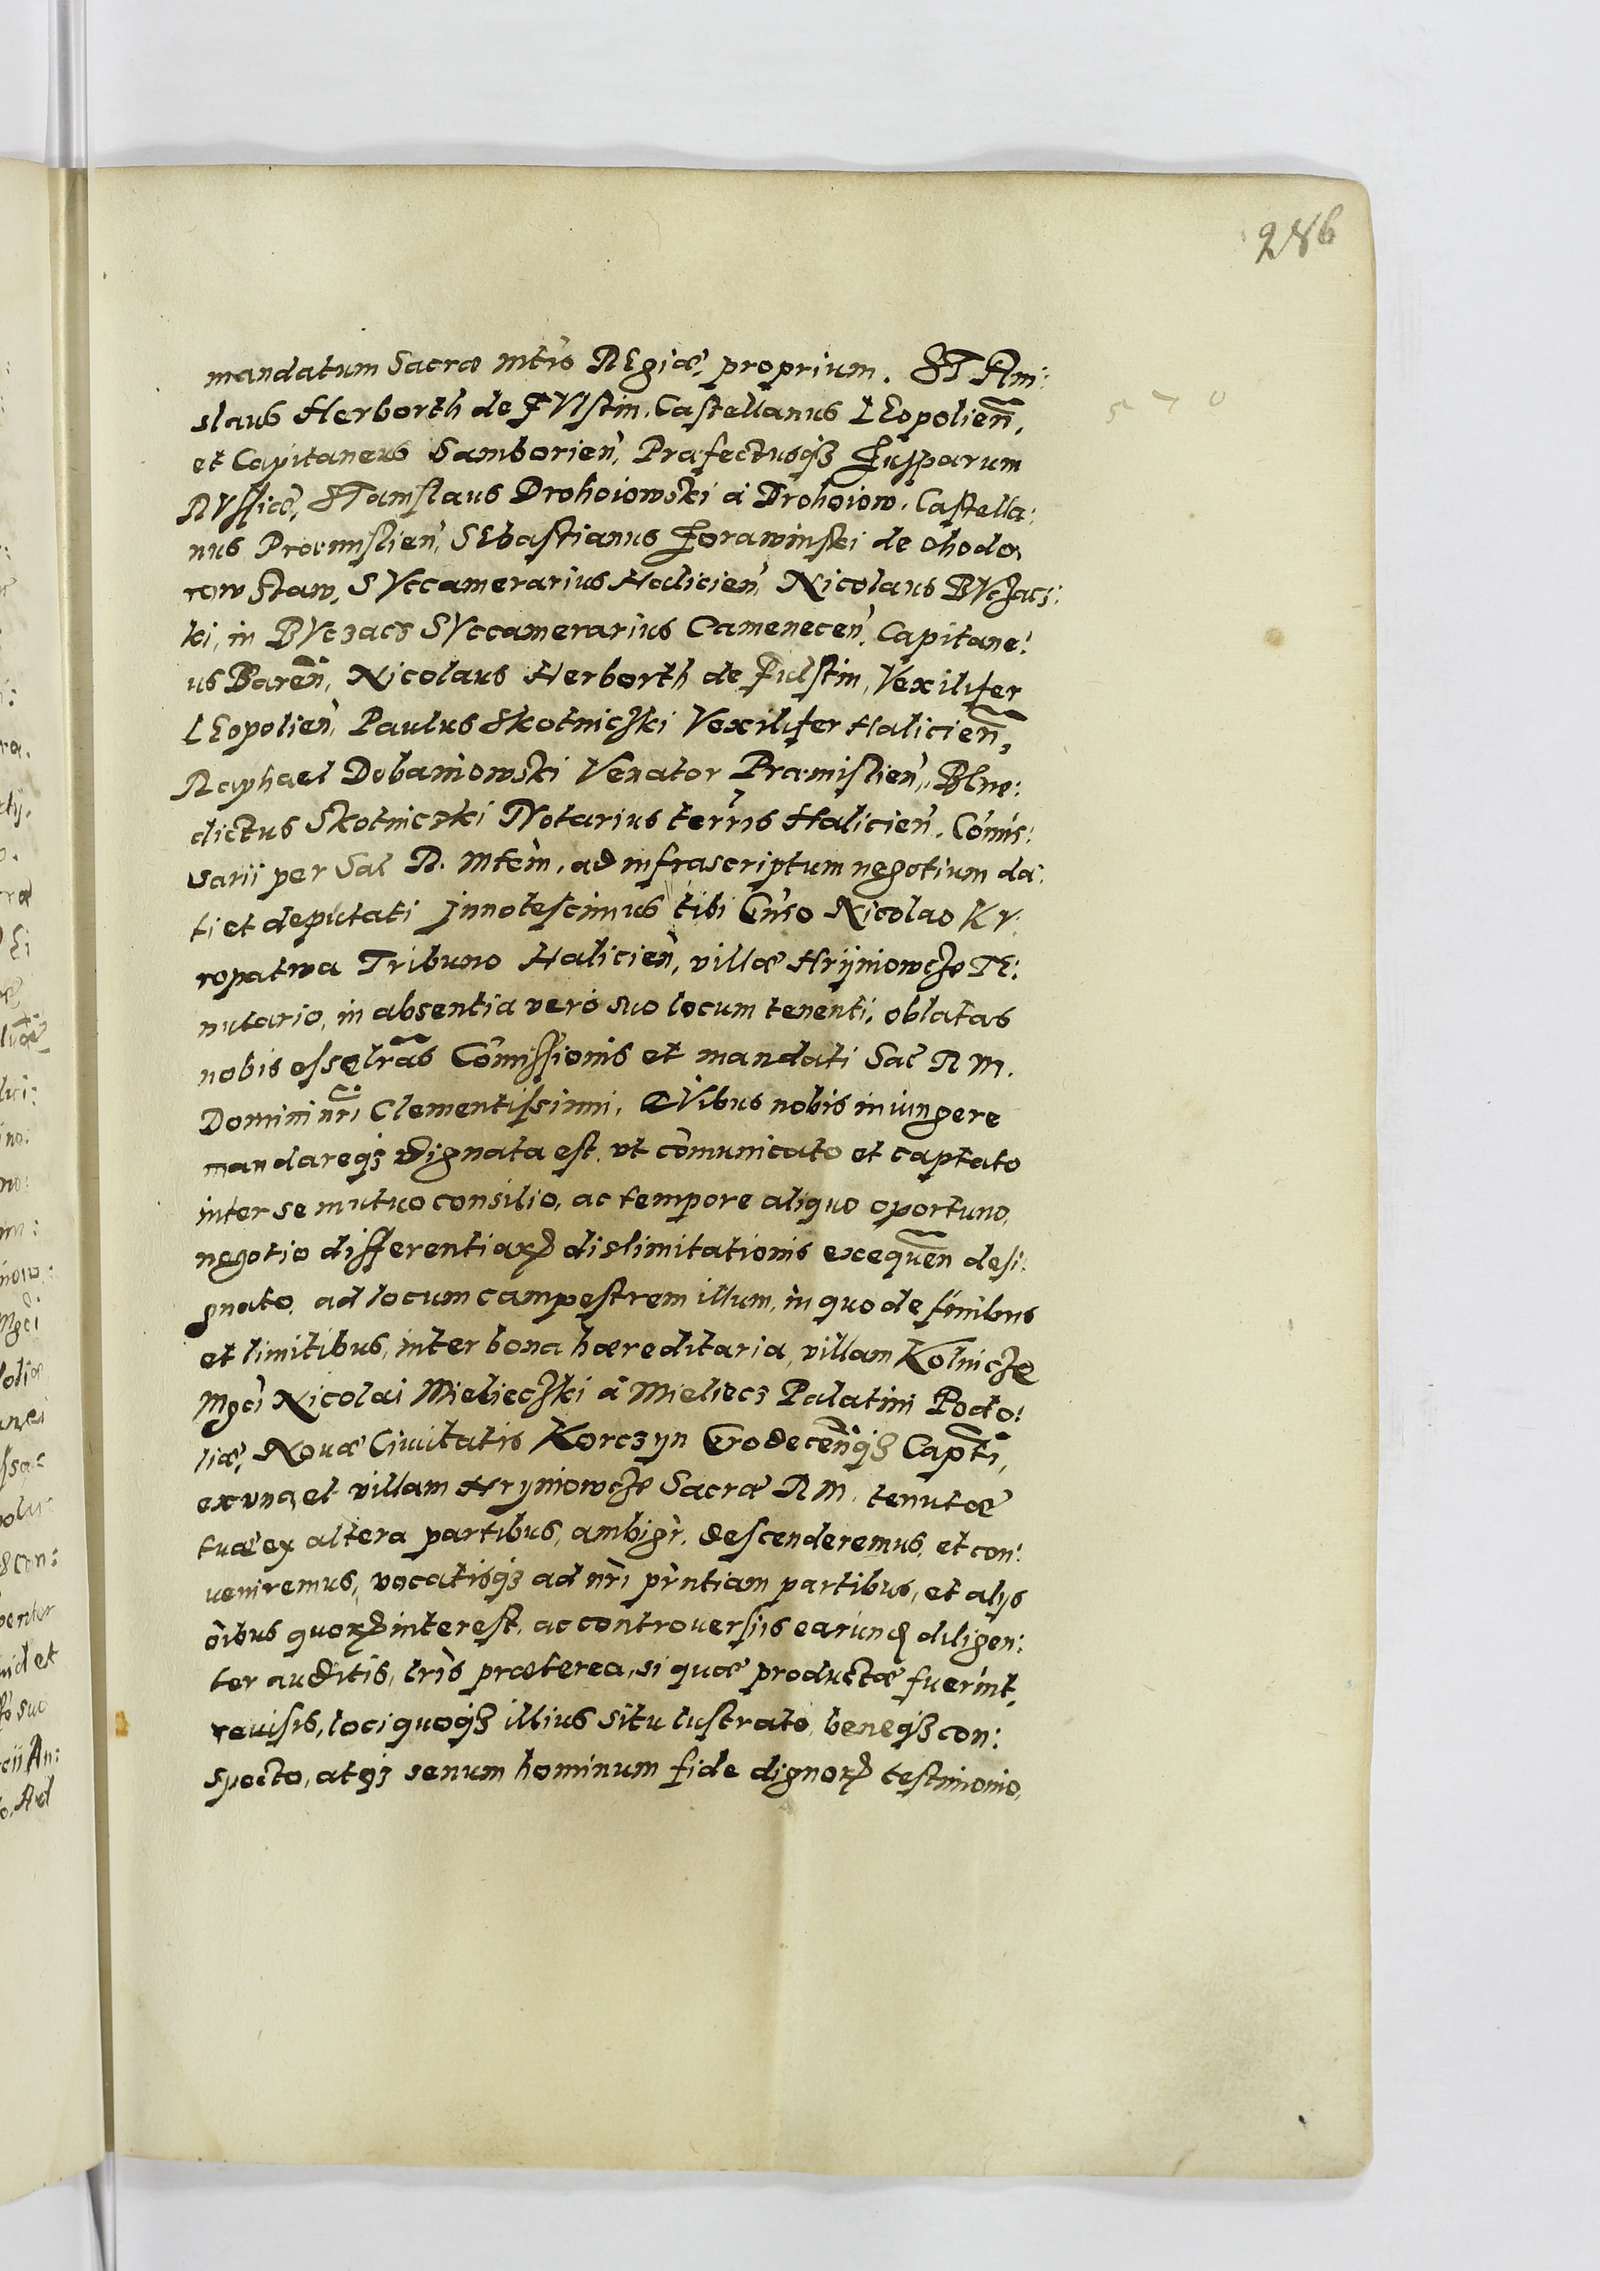 286
570
mandatum Sacræ mtis REgiæ, proprium. STAni:
slaus Herborth de FVlstin, Castellanus LEopolien,
et Capitaneus Samborien, Præfectusq3 Zupparum
RVssiæ, STanislaus Drohoiowski á Drohoiow, Castella:
nus Præmislien, SEbastianus Zorawinski de Chodo:
row staw, SVccamerarius Halicien, Nicolaus BVczacz:
ki, in BVczacz SVccamerarius Camenecen, Capitane:
us Baren, Nicolaus Herborth de Fulstin, Vexilifer
LEopolien, Paulus Skotniczki Vexilifer Halicien,
Raphael Dobaniowski Venator Præmislien, BEne:
dictus Skotniczki Notarius terris Halicien, Comis:
sarii per Sac R. Mtem, ad infrascriptum negotium da:
ti et deputati Innotescimus tibi Gnso Nicolao Kv:
ropatwa Tribuno Halicien, villæ Hrijniowcze TE:
nutario, in absentia veró suo locum tenenti, oblatas
nobis esse lras Comissionis et mandati Sac R M.
Domini nri Clementissimi, QVibus nobis iniungere
mandareq3 dignata est, vt comunicato et captato
inter se mutuo consilio, ac tempore aliquo oportuno,
negotio differentiar dislimitationis exequen desi:
gnato, ad locum campestrem illum, in quo de finibus
et limitibus, inter bona hæreditaria, villam Kolnicze
Mgci Nicolai Mielieczki á Mieliecz Palatini Podo:
liæ, Novæ Civitatis Korczyn Grodecenq3 Capti,
ex vna, et villam Hryniowcze Sacræ R M. tenutæ
tuæ ex altera partibus, ambigr, descenderemus, et con:
veniremus, vocatisq3 ad nri prntiam partibus, et alijs
oibus quor interest, ac controversiis earund diligen:
ter auditis, lris præterea, si quæ productæ fuerint,
reuisis, loci quoq3 illius situ lustrato, beneq3 con:
specto, atq3 senum hominum fide dignor testimonio,